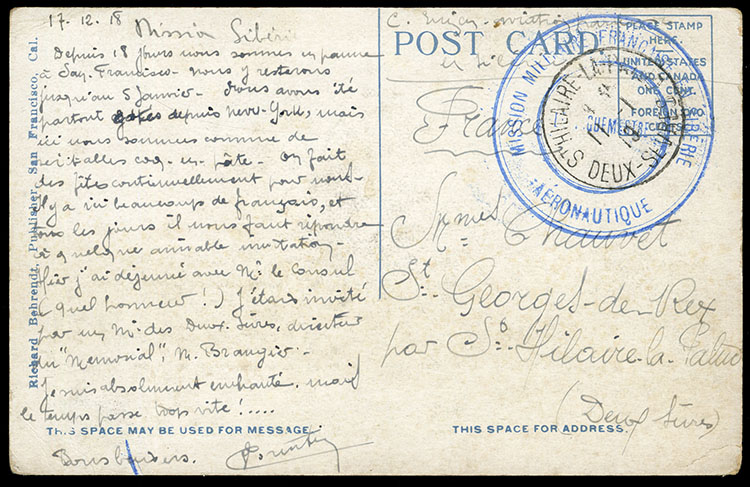 17.12.18
Mission Sibérie
Depuis 18 jours nous sommes en panne
à San Francisco - nous y resterons
jusqu'au 5 Janvier - Nous avons été
partout gâtés depuis New-York, mais
ici nous sommes comme de
véritables coq-en-pâte - On fait
des fêtes continuellement pour nous -
Il y a ici beaucoup de français, et
tous les jours il nous faut répondre
à quelque aimable invitation -
Hier j'ai déjeuné avec Mr le Consul
(quel honneur!) J'étais invité
par un Mr des Deux-Sèvres, directeur
du "Memorial", M. Brangier -
Je suis absolument enchanté, mais
le temps passe trop vite!....
THIS SPACE MAY BE USED FOR MESSAGE.
Bons baisers.
Richard Behrendt, Publisher, San Francisco, Cal.
POST CARD
PLACE STAMP
HERE.
UNITED STATES
AND CANADA
ONE CENT.
FOREIGN TWO
CENTS.
MISSION MILITAIRE FRANÇAISE SIBERIE
AÉRONAUTIQUE
ST HILAIRE-LA-PALUD
DEUX-SEVRES
France
Mmes Chauvet
St Georges-de-Rex
par St Hilaire-la-Palud
(Deux Sèvres)
THIS SPACE FOR ADDRESS.